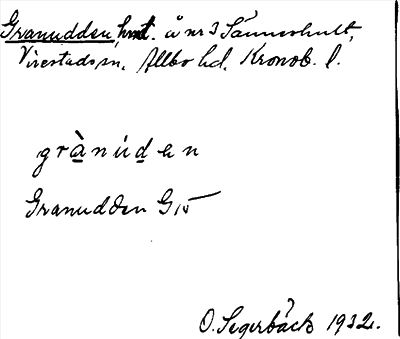 Granudden, hmt. å nr 3 Sännshult,
Virestads sn. Allbo hd. Kronob. l.
grànúden
Granudden G 15
O. Segerbäck 1932.